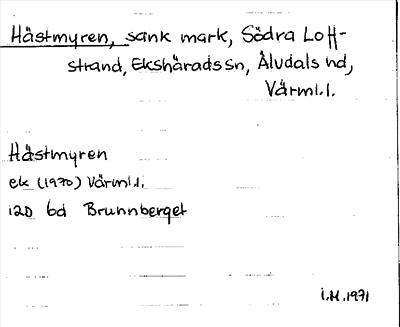 Hästmyren, sank mark, Södra Loff-
strand, Ekshärads sn, Älvdals hd,
Värml.l.
Hästmyren
ek (1970) Värml.l.
12D 6d Brunnberget
I.M. 1971